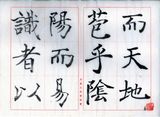 而天地
苞乎陰
陽而易
識者以